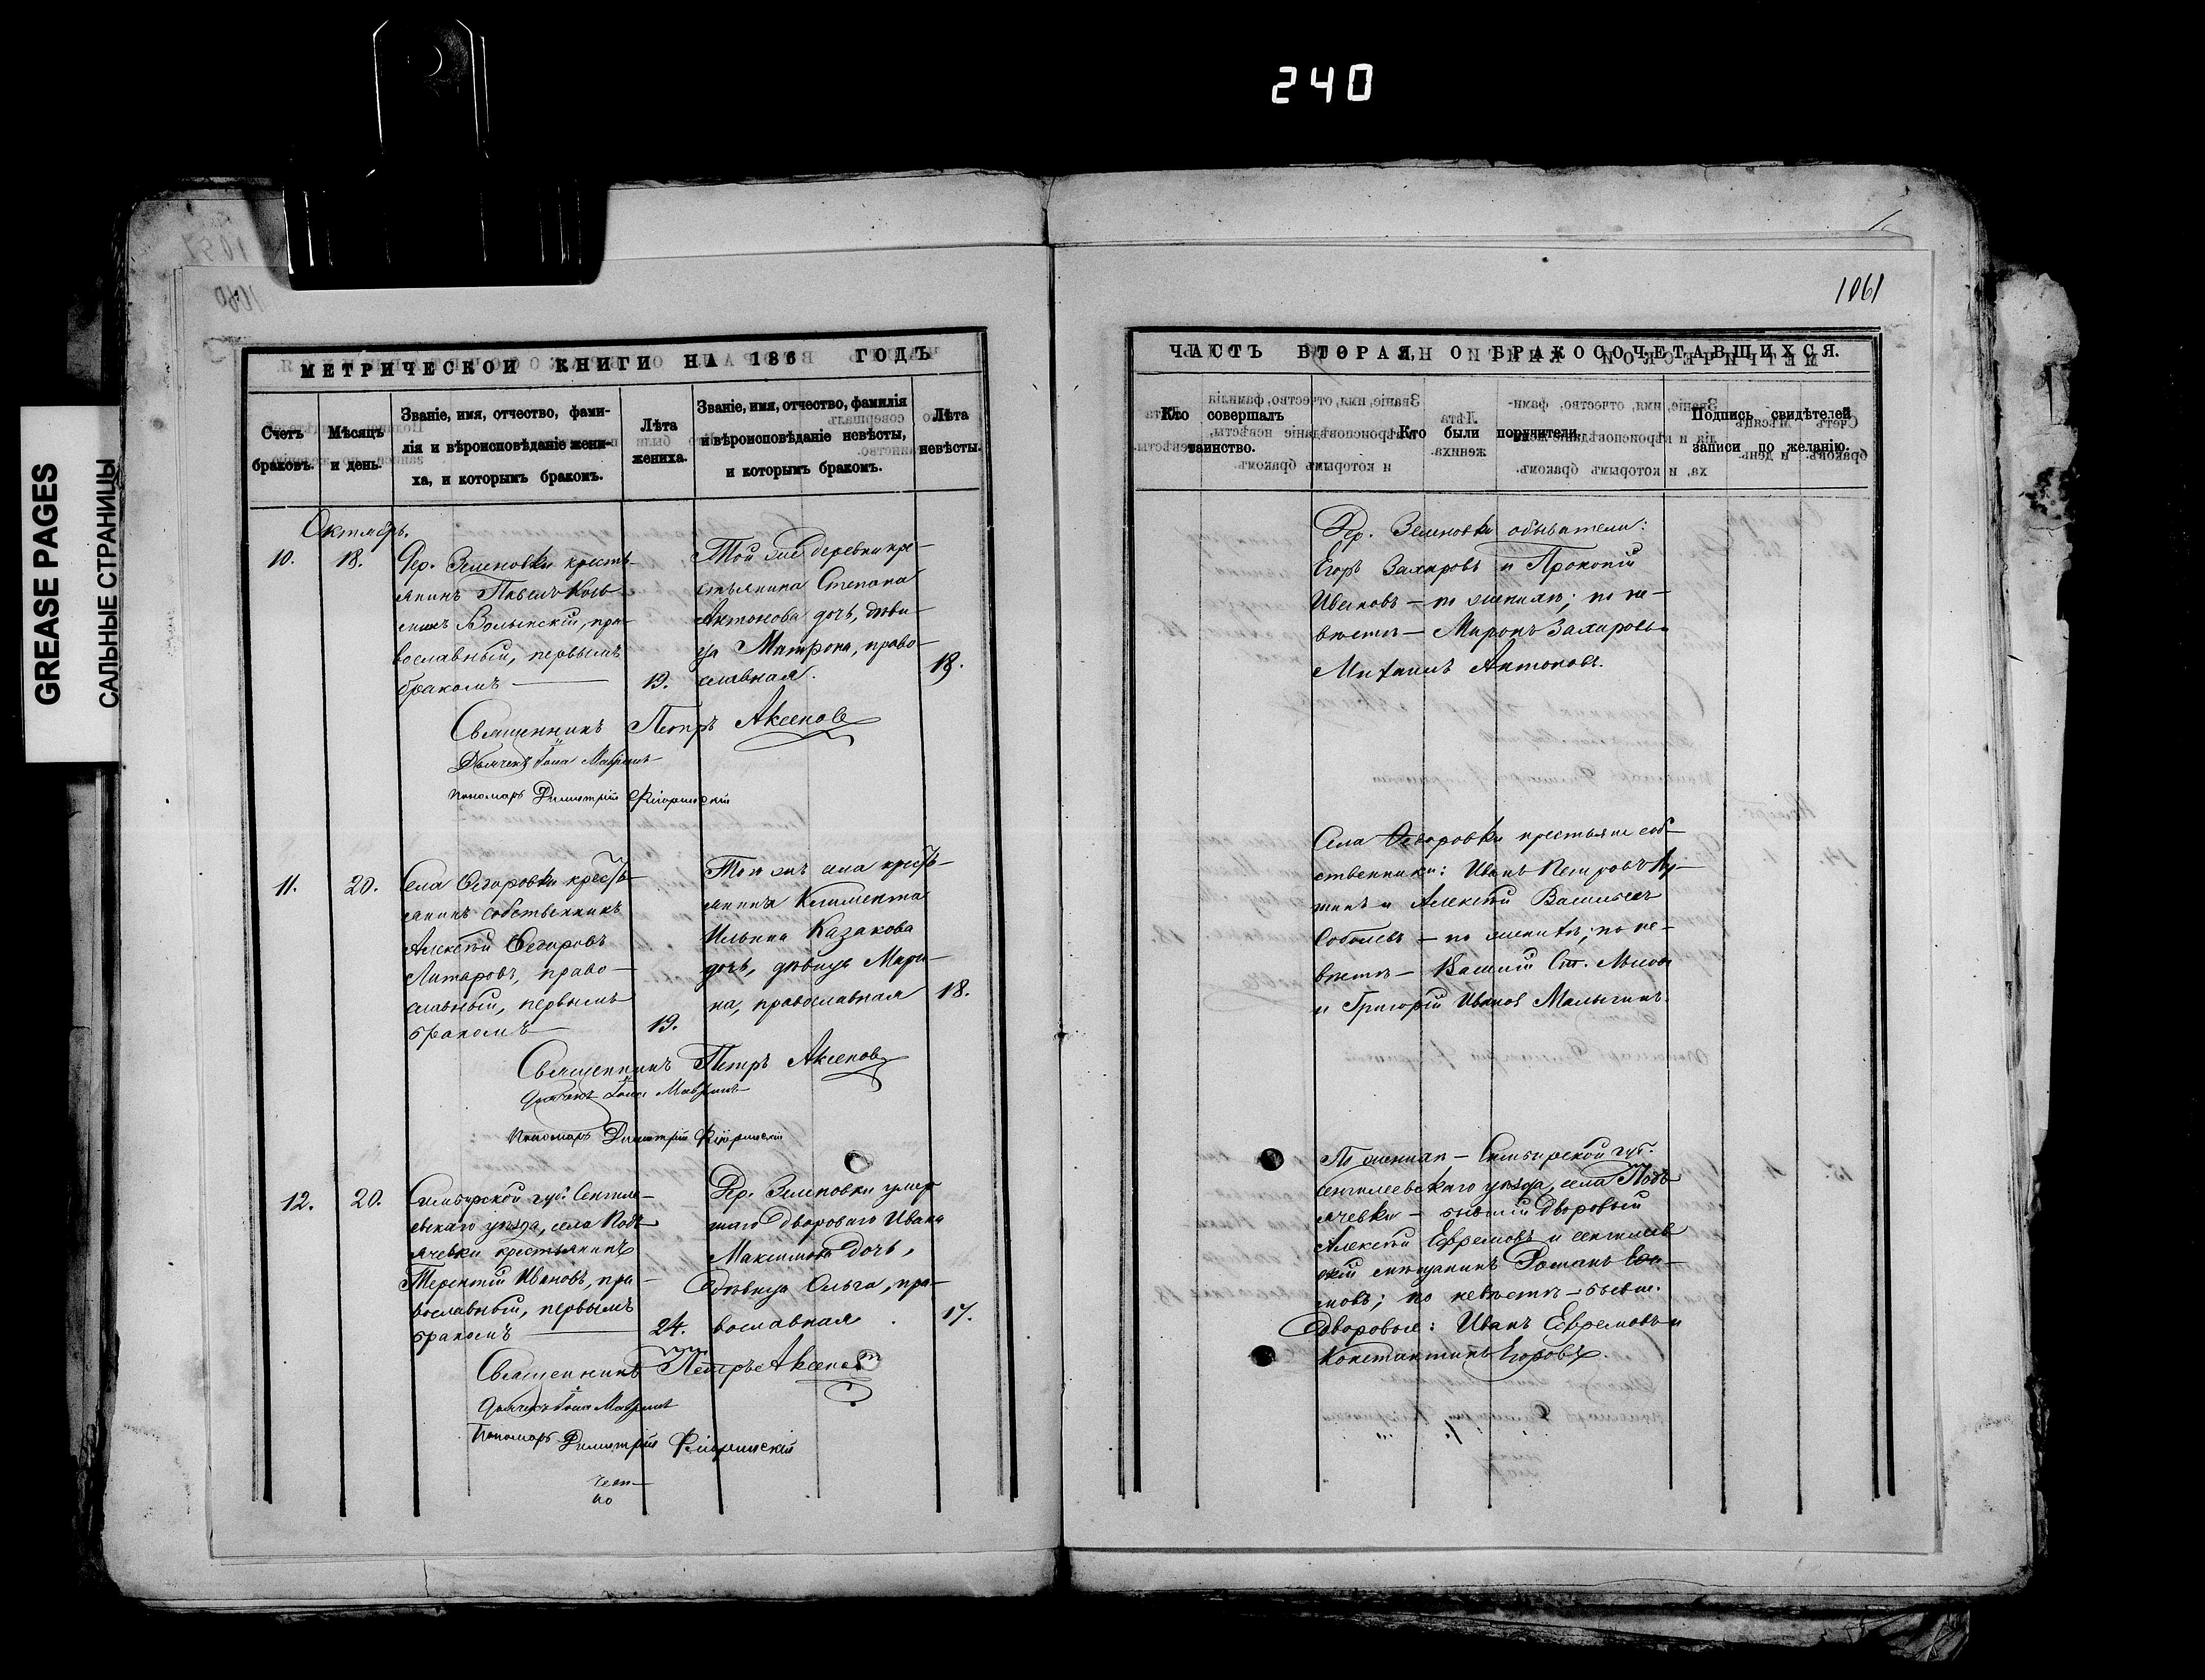 240
GREASE PAGES
САЛЬНЫЕ СТРАНИЦЫ
1061
МЕТРИЧЕСКОЙ КНИГИ НА 186 ГОДЪ
Счетъ браковъ.
Мѣсяцъ и день.
Званіе, имя, отчество, фами-
лія и вѣроисповѣданіе жени-
ха, и которымъ бракомъ.
Лѣта жениха.
Званіе, имя, отчество, фамилія
и вѣроисповѣданіе невѣсты,
и которымъ бракомъ.
Лѣта невѣсты.
Октябрь.
10.
18.
Дер. Земновки кресть-
янинъ Павелъ
Волынскій, пра-
вославный, первымъ
бракомъ
19.
Той же деревни кре-
стьянина Степана
Антонова дочь, дѣви-
ца Матрона, право-
славная.
18.
Священникъ Петръ Аксеновъ
Дьячекъ Мавринъ
Пономарь Димитрій
11.
20.
Села Ѳедоровки кресть-
янинъ собственникъ
Алексѣй Ѳедоровъ
право-
славный, первымъ
бракомъ
19.
Того же села кресть-
янина Климента
Ильина Казакова
дочь, дѣвица Мари-
на, православная
18.
Священникъ Петръ Аксеновъ
Дьячекъ Мавринъ
Пономарь Димитрій
12.
20.
Симбирской губ. Сенгиле-
евскаго уѣзда, села Подъ-
ячевки крестьянинъ
Терентій Ивановъ, пра-
вославный, первымъ
бракомъ
24.
Дер. Земновки умер-
шаго двороваго Ивана
Максимова дочь,
дѣвица Ольга, пра-
вославная
17.
Священникъ Петръ Аксеновъ
Дьячекъ Мавринъ
Пономарь Димитрій
ЧАСТЬ ВТОРАЯ, О БРАКОСОЧЕТАВШИХСЯ.
Кто совершалъ
таинство.
Кто были поручители.
Подпись свидѣтелей
записи по желанію.
Дер. Земновки обыватели:
Егоръ Захаровъ и Прокопій
Ивановъ — по женихѣ; по не-
вѣстѣ — Миронъ Захаровъ и
Михаилъ Антоновъ.
Села Ѳедоровки крестьяне соб-
ственники: Иванъ Петровъ
и Алексѣй Васильевъ
Соболевъ — по женихѣ; по не-
вѣстѣ —
и Григорій Ивановъ Малыгинъ.
По женихѣ — Симбирской губ.
Сенгилеевскаго уѣзда, села Подъ-
ячевки — бывшій дворовый
Алексѣй Ефремовъ и сенгилеев-
скій мѣщанинъ Романъ
по невѣстѣ — бывш.
дворовые: Иванъ Ефремовъ и
Константинъ Егоровъ.